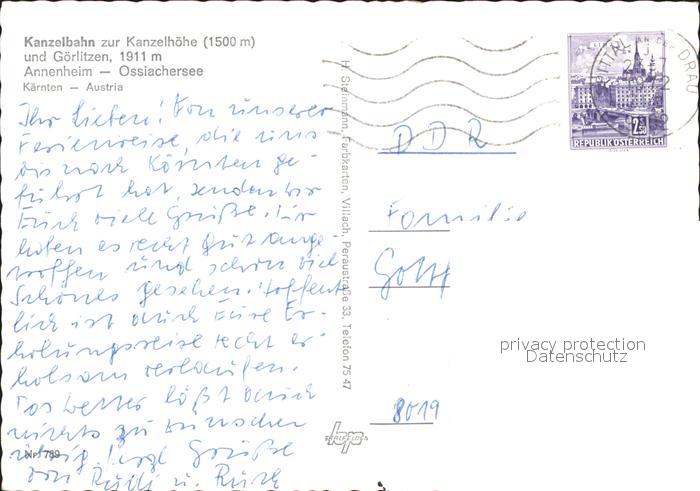 Kanzelbahn zur Kanzelhöhe (1500 m)
und Görlitzen, 1911 m
Annenheim — Ossiachersee
Kärnten — Austria
Ihr Lieben! Von unserer
Ferienreise, die uns
bis nach Kärnten ge-
führt hat, senden wir
Euch viele Grüße. Wir
haben es recht gut ange-
troffen und schon viel
Schönes gesehen. Hoffent-
lich ist auch Eure Er-
holungsreise recht er-
holsam verlaufen.
Das Wetter läßt auch
nichts zu wünschen
übrig. Herzl. Grüße
von Rudi u. Ruth
Nr. 789
H. Steinmann, Farbkarten, Villach, Peraustraße 33, Telefon 75 47
hp
SPITTAL AN DER DRAU
2.50
REPUBLIK ÖSTERREICH
DDR
Familie
privacy protection
Datenschutz
8019